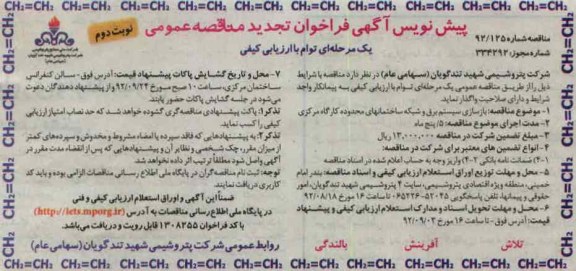 CH₂=CH₂ CH₂=CH₂ CH₂=CH₂ CH₂=CH₂ CH₂=CH₂ CH₂=CH₂ CH₂=CH₂ CH₂=CH₂
پیش نویس آگهی فراخوان تجدید مناقصه عمومی
نوبت دوم
یک مرحله‌ای توام با ارزیابی کیفی
مناقصه شماره ۹۲/۱۲۵
شماره مجوز: ۳۳۴۲۹۲
شرکت پتروشیمی شهید تندگویان (سهامی عام) در نظر دارد مناقصه با شرایط
ذیل را از طریق مناقصه عمومی یک مرحله‌ای توام با ارزیابی کیفی به پیمانکار واجد
شرایط و دارای صلاحیت واگذار نماید.
۱- موضوع مناقصه: بازسازی سیستم برق و شبکه ساختمانهای محدوده کارگاه مرکزی
۲- مدت اجرای موضوع مناقصه: (۵) پنج ماه
۳- مبلغ تضمین شرکت در مناقصه: ۱۳,۰۰۰,۰۰۰ ریال
۴- انواع تضمین های معتبر برای شرکت در مناقصه:
۴-۱) ضمانت نامه بانکی ۴-۲) واریز وجه به حساب اعلام شده در اسناد مناقصه
۵- محل و مهلت توزیع اوراق استعلام ارزیابی کیفی و اسناد مناقصه: بندر امام
خمینی، منطقه ویژه اقتصادی پتروشیمی، سایت ۴ پتروشیمی شهید تندگویان، امور
حقوقی و پیمانها، تلفن پاسخگویی ۵۲۰۴۵-۰۶۵۲۲۶ تا ساعت ۱۶ مورخ ۹۲/۰۸/۱۸
۶- محل و مهلت تحویل اسناد و مدارک استعلام ارزیابی کیفی و پیشنهاد
قیمت: آدرس فوق - تا ساعت ۱۶ مورخ ۹۲/۰۹/۰۲
۷- محل و تاریخ گشایش پاکات پیشنهاد قیمت: آدرس فوق - سالن کنفرانس
ساختمان مرکزی، ساعت ۱۰ صبح مورخ ۹۲/۰۹/۲۴ و از پیشنهاد دهندگان دعوت
می‌شود در جلسه گشایش پاکات حضور یابند.
تذکر۱: پاکت پیشنهادی مناقصه گری گشوده خواهد شد که حد نصاب امتیاز ارزیابی
کیفی را کسب نماید.
تذکر۲: به پیشنهادهایی که فاقد سپرده یا امضاء مشروط و مخدوش و سپرده‌های کمتر
از میزان مقرر، چک شخصی و نظایر آن و پیشنهادهایی که پس از انقضاء مدت مقرر در
آگهی واصل شود مطلقاً ترتیب اثر داده نخواهد شد.
توجه: ثبت نام مناقصه گران در پایگاه ملی اطلاع رسانی مناقصات الزامی بوده و باید کد
کاربری دریافت نمایند.
ضمناً این آگهی و اوراق استعلام ارزیابی کیفی و فنی
در پایگاه ملی اطلاع رسانی مناقصات به آدرس (http://iets.mporg.ir)
با کد فراخوان ۱۳۰۸۲۵۵ قابل رویت و دریافت می‌باشد.
روابط عمومی شرکت پتروشیمی شهید تندگویان (سهامی عام)
تلاش آفرینش بالندگی
CH₂=CH₂ CH₂=CH₂ CH₂=CH₂ CH₂=CH₂ CH₂=CH₂ CH₂=CH₂ CH₂=CH₂ CH₂=CH₂